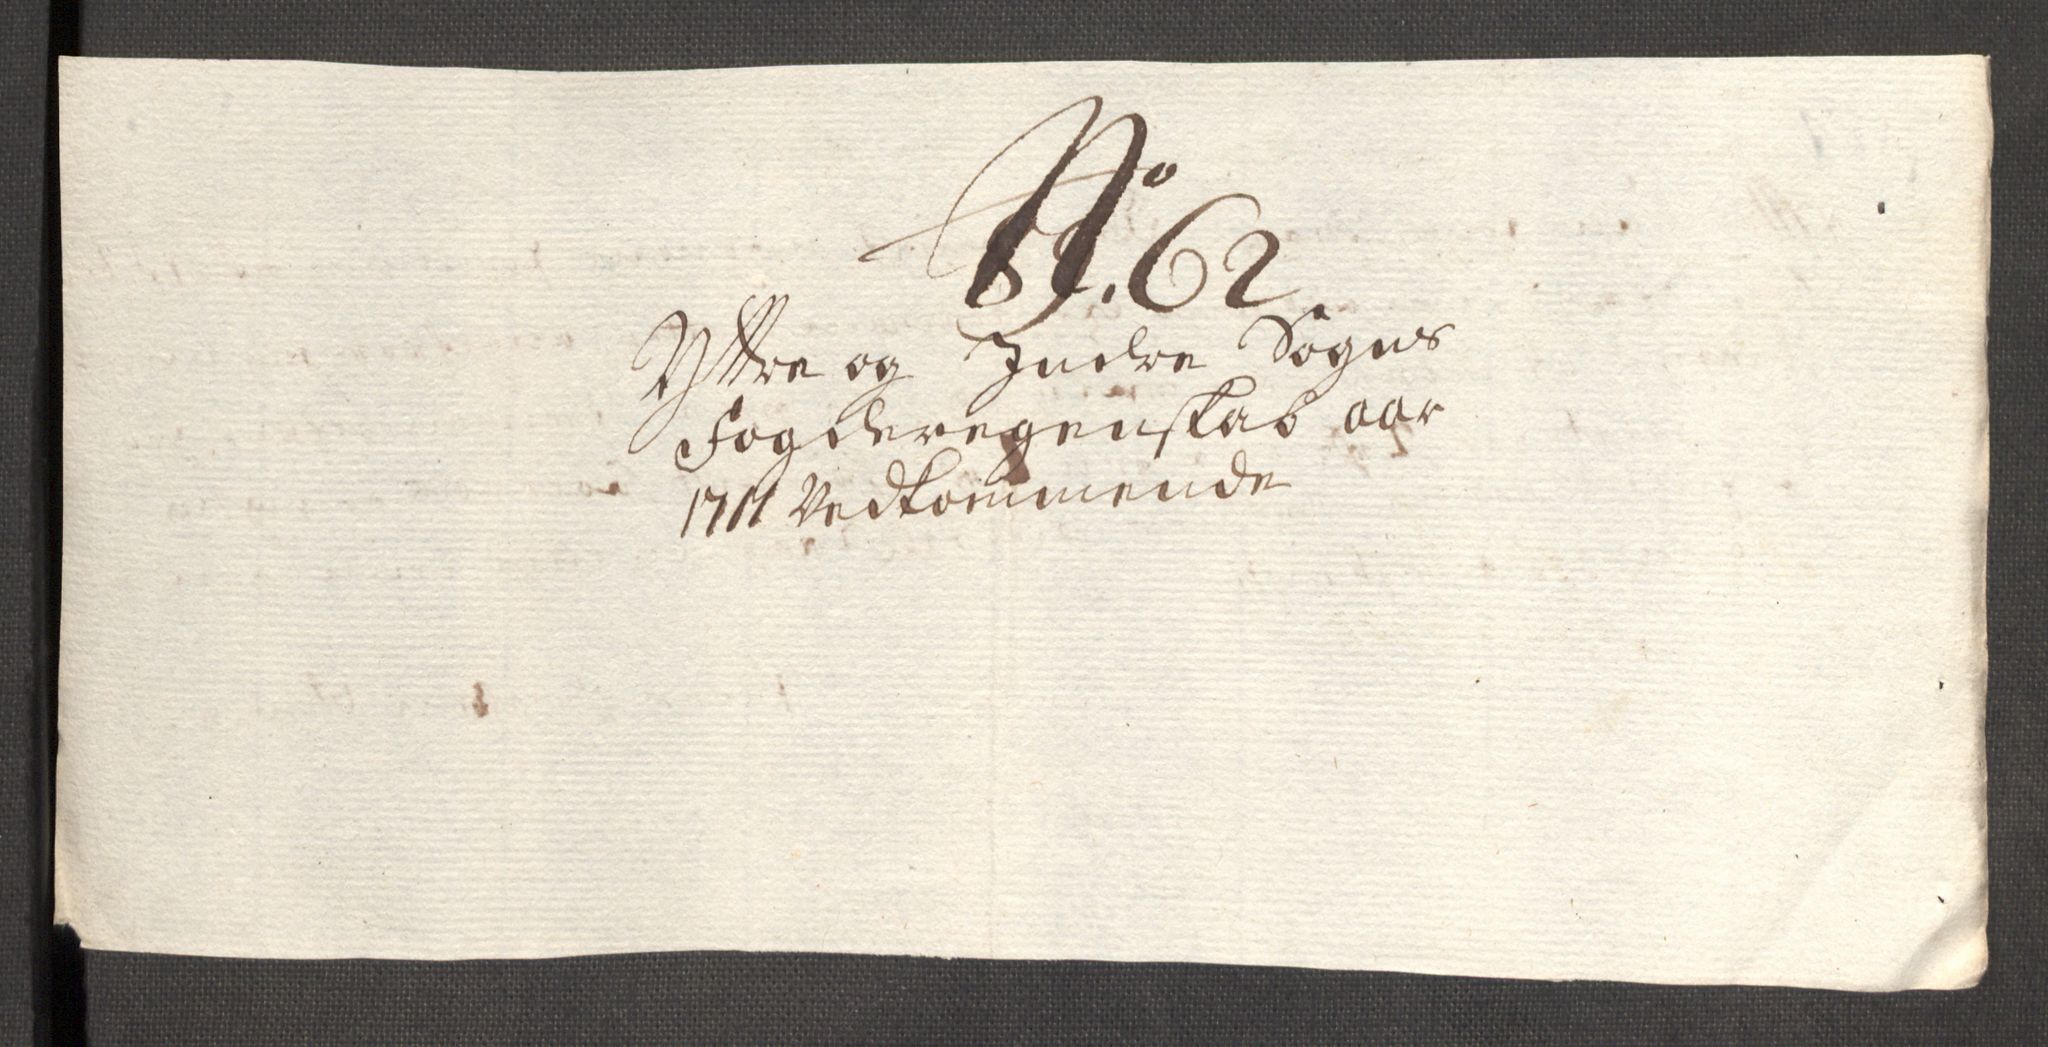 No. 62.
Yttre og Indre Sogns
Fogderegenskab aar
1711 Vedkommende